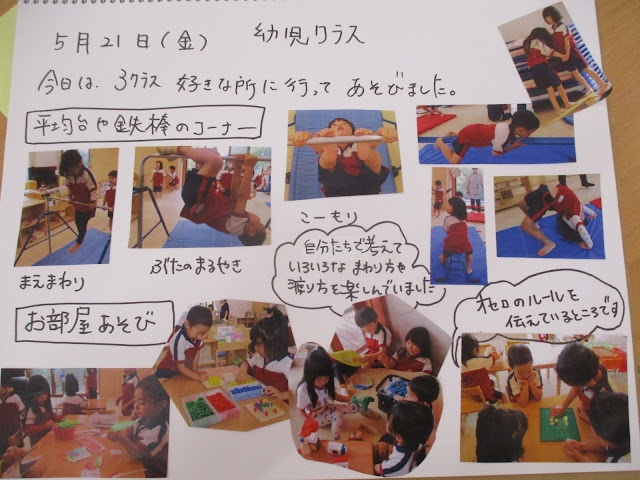 5月21日(金) 幼児クラス
今日は、3クラス 好きな所に行って あそびました。
平均台や鉄棒のコーナー
まえまわり
ぶたのまるやき
こーもり
自分たちで考えて
いろいろな まわり方や
渡り方を楽しんでいました
お部屋あそび
オセロのルールを
伝えているところです